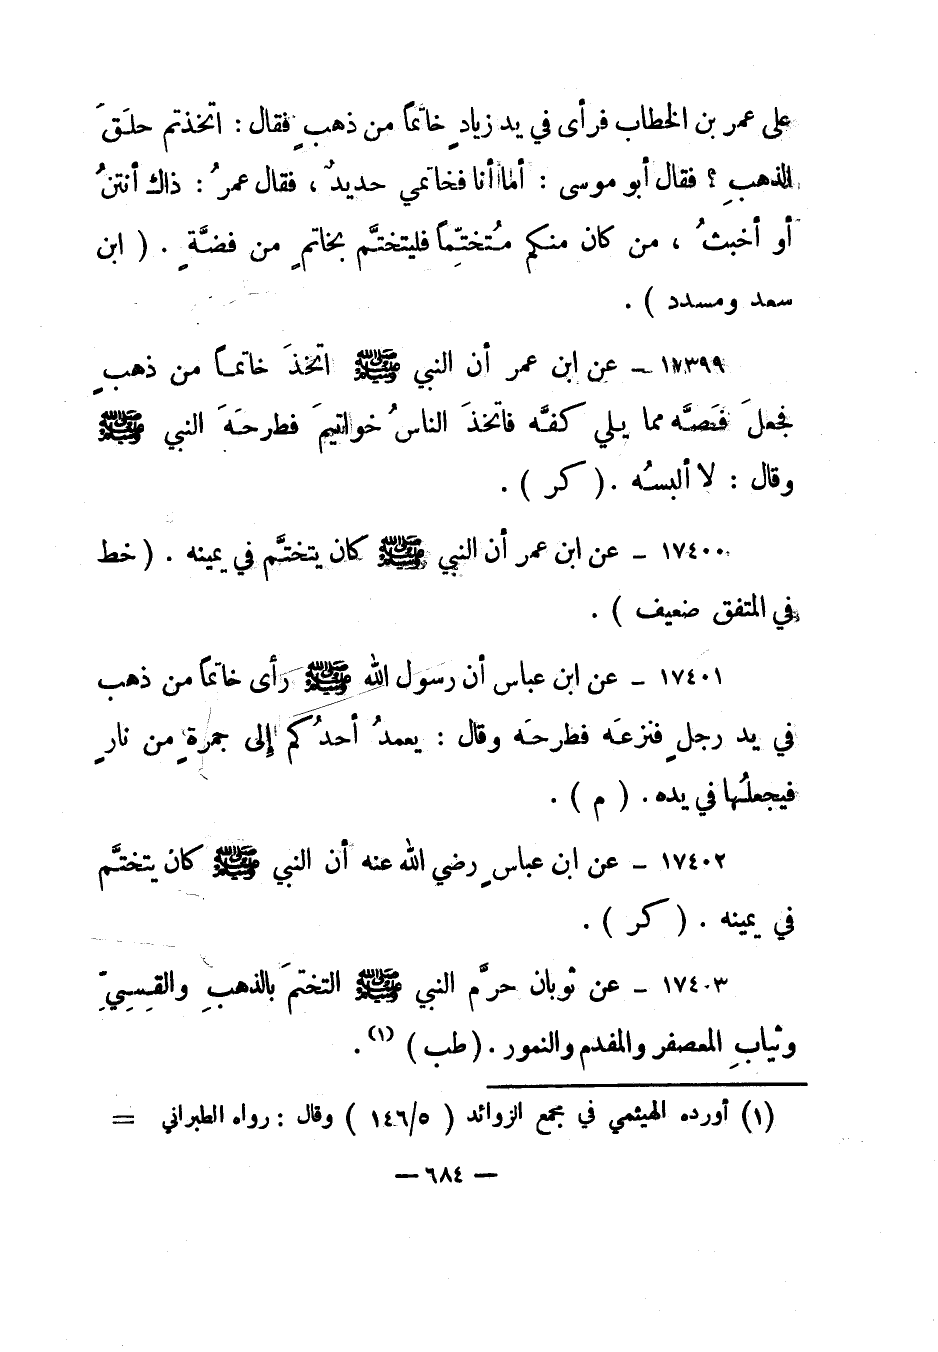 على عمر بن الخطاب فرأى في يد زيادٍ خاتماً من ذهبٍ فقال : اتخذتم حلَقَ
الذهبِ ؟ فقال أبو موسى : أما أنا فخاتمي حديدٌ ، فقال عمرُ : ذاك أنتنُ
أو أخبثُ ، من كان منكم مُتختِّماً فليتختَّم بخاتمٍ من فضَّةٍ . ( ابن
سعد ومسدد ) .
١٧٣٩٩ ـ عن ابن عمر أن النبي ﷺ اتخذَ خاتمـاً من ذهبٍ
فجعلَ فَصَّه مما يلي كفَّه فاتخذَ الناسُ خواتيمَ فطرحَهَ النبي ﷺ
وقال : لا ألبسُه . ( كر ) .
١٧٤٠٠ ـ عن ابن عمر أن النبي ﷺ كان يتختَّم في يمينه . ( خط
في المتفق ضعيف ) .
١٧٤٠١ ـ عن ابن عباس أن رسول الله ﷺ رأى خاتماً من ذهب
في يد رجلٍ فنزعَه فطرحَه وقال : يعمدُ أحدُكم إلى جمرةٍ من نارٍ
فيجعلُها في يده . ( م ) .
١٧٤٠٢ ـ عن ابن عباسٍ رضي الله عنه أن النبي ﷺ كان يتختَّم
في يمينه . ( كر ) .
١٧٤٠٣ ـ عن ثوبان حرَّم النبي ﷺ التختمَ بالذهبِ والقِسِيِّ
وثيابِ المعصفر والمفدم والنمور . ( طب ) (١) .
(١) أورده الهيثمي في مجمع الزوائد ( ١٤٦/٥ ) وقال : رواه الطبراني =
— ٦٨٤ —